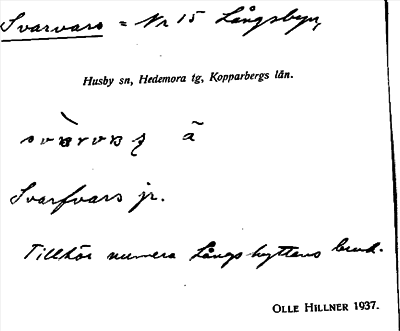 Svarvars = Nr 15 Långsbyn,
Husby sn, Hedemora tg, Kopparbergs län.
ã
Svarfvars jr.
Tillhör numera Långshyttans bruk.
OLLE HILLNER 1937.